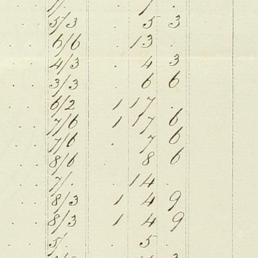 5/3 . 5 3
6/6 . 13 .
4/3 . 4 3
3/3 . 6 6
6/2 1 17 .
7/6 1 17 6
7/6 . 7 6
8/6 . 8 6
7/. . 14 .
8/3 1 4 9
8/3 1 4 9
5/. . 5 .